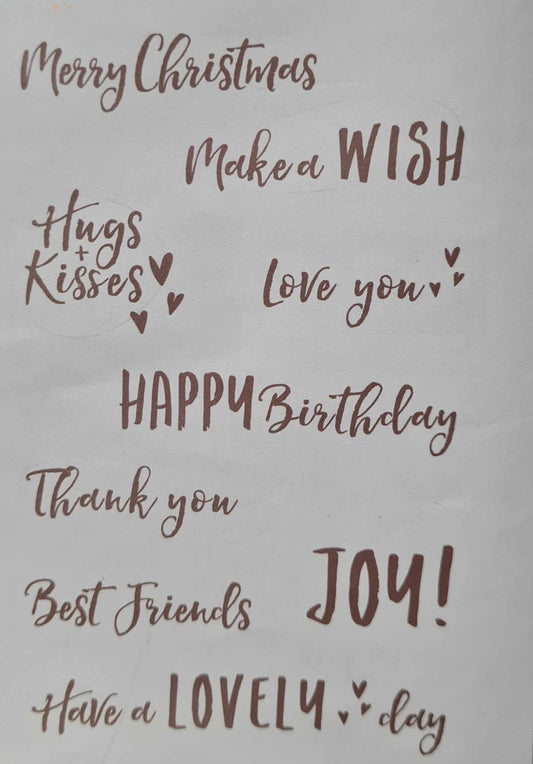 Merry Christmas
Make a WISH
Hugs
+
Kisses
Love you
HAPPY Birthday
Thank you
JOY!
Best Friends
Have a LOVELY day